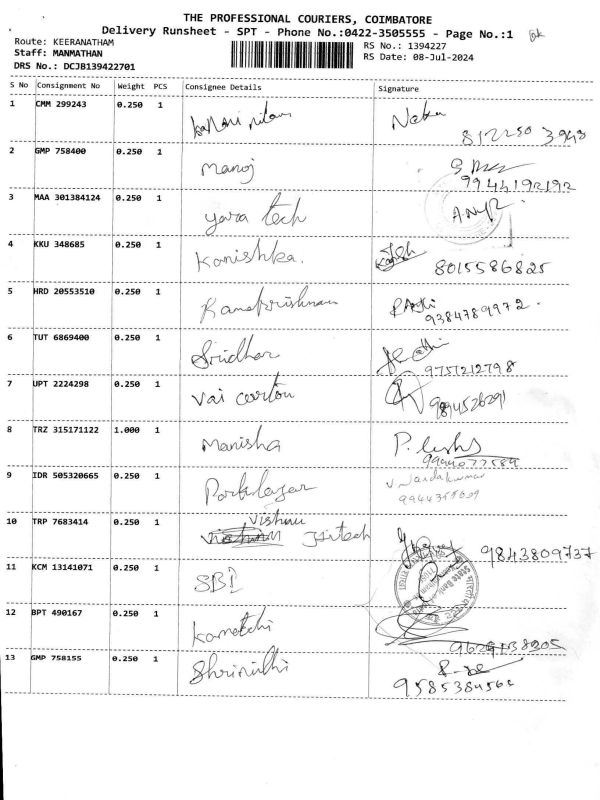 THE PROFESSIONAL COURIERS, COIMBATORE
Delivery Runsheet - SPT - Phone No.:0422-3505555 - Page No.:1
Route: KEERANATHAM
Staff: MANMATHAN
DRS No.: DCJB139422701
RS No.: 1394227
RS Date: 08-Jul-2024
S No Consignment No Weight PCS Consignee Details Signature
1 CMM 299243 0.250 1
2 GMP 758400 0.250 1 Manoj
9944192192
3 MAA 301384124 0.250 1 yara tech
4 KKU 348685 0.250 1 Kanishka.
8015586825
5 HRD 20553510 0.250 1 Ramakrishnan
9384789972.
6 TUT 6869400 0.250 1 Sridhar
9751212798
7 UPT 2224298 0.250 1 Vai carton
9894526291
8 TRZ 315171122 1.000 1 Manisha
9944077589
9 IDR 505320665 0.250 1
V. Nandakumar
10 TRP 7683414 0.250 1 Vishnu
9843809737
11 KCM 13141071 0.250 1 SBI
State Bank
12 BPT 490167 0.250 1 Kamatchi
13 GMP 758155 0.250 1 Shrinidhi